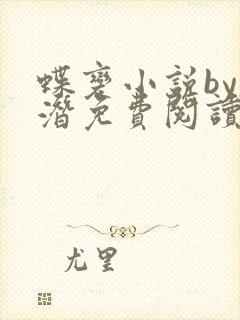 蝶变小说by
潜免費閱讀
尤里